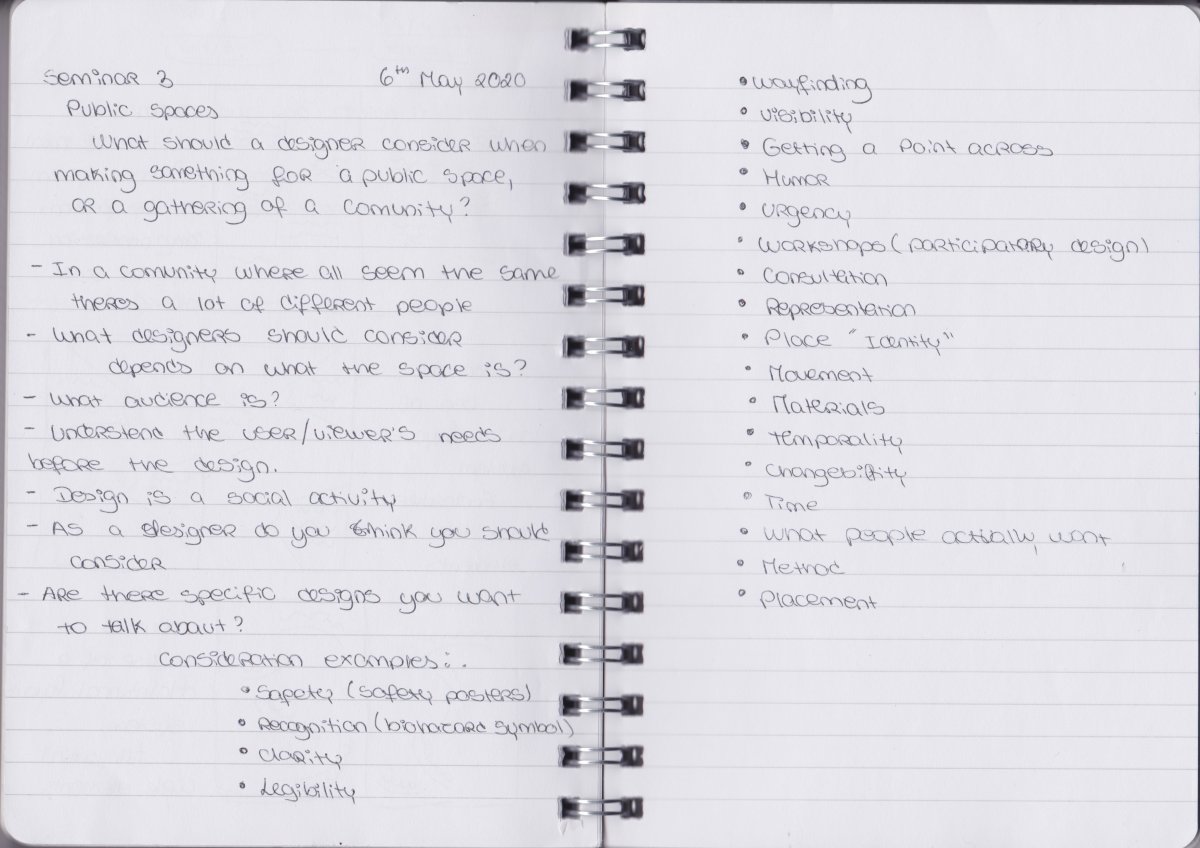 Seminar 3 6th May 2020
Public Spaces
What should a designer consider when
making something for a public space,
or a gathering of a comunity?
- In a comunity where all seem the same
theres a lot of different people
- What designers should consider
depends on what the space is?
- What audience is?
- Understend the user/viewer's needs
before the design.
- Design is a social activity
- As a designer do you think you should
consider
- Are there specific designs you want
to talk about?
Consideration examples:.
• Safety (safety posters)
• Recognition (biohazard symbol)
• Clarity
• Legibility
• Wayfinding
• Visibility
• Getting a point across
• Humor
• Urgency
• Workshops (participatary design)
• Consultation
• Representation
• Place "Identity"
• Movement
• Materials
• Temporality
• Changebility
• Time
• What people actially want
• Method
• Placement